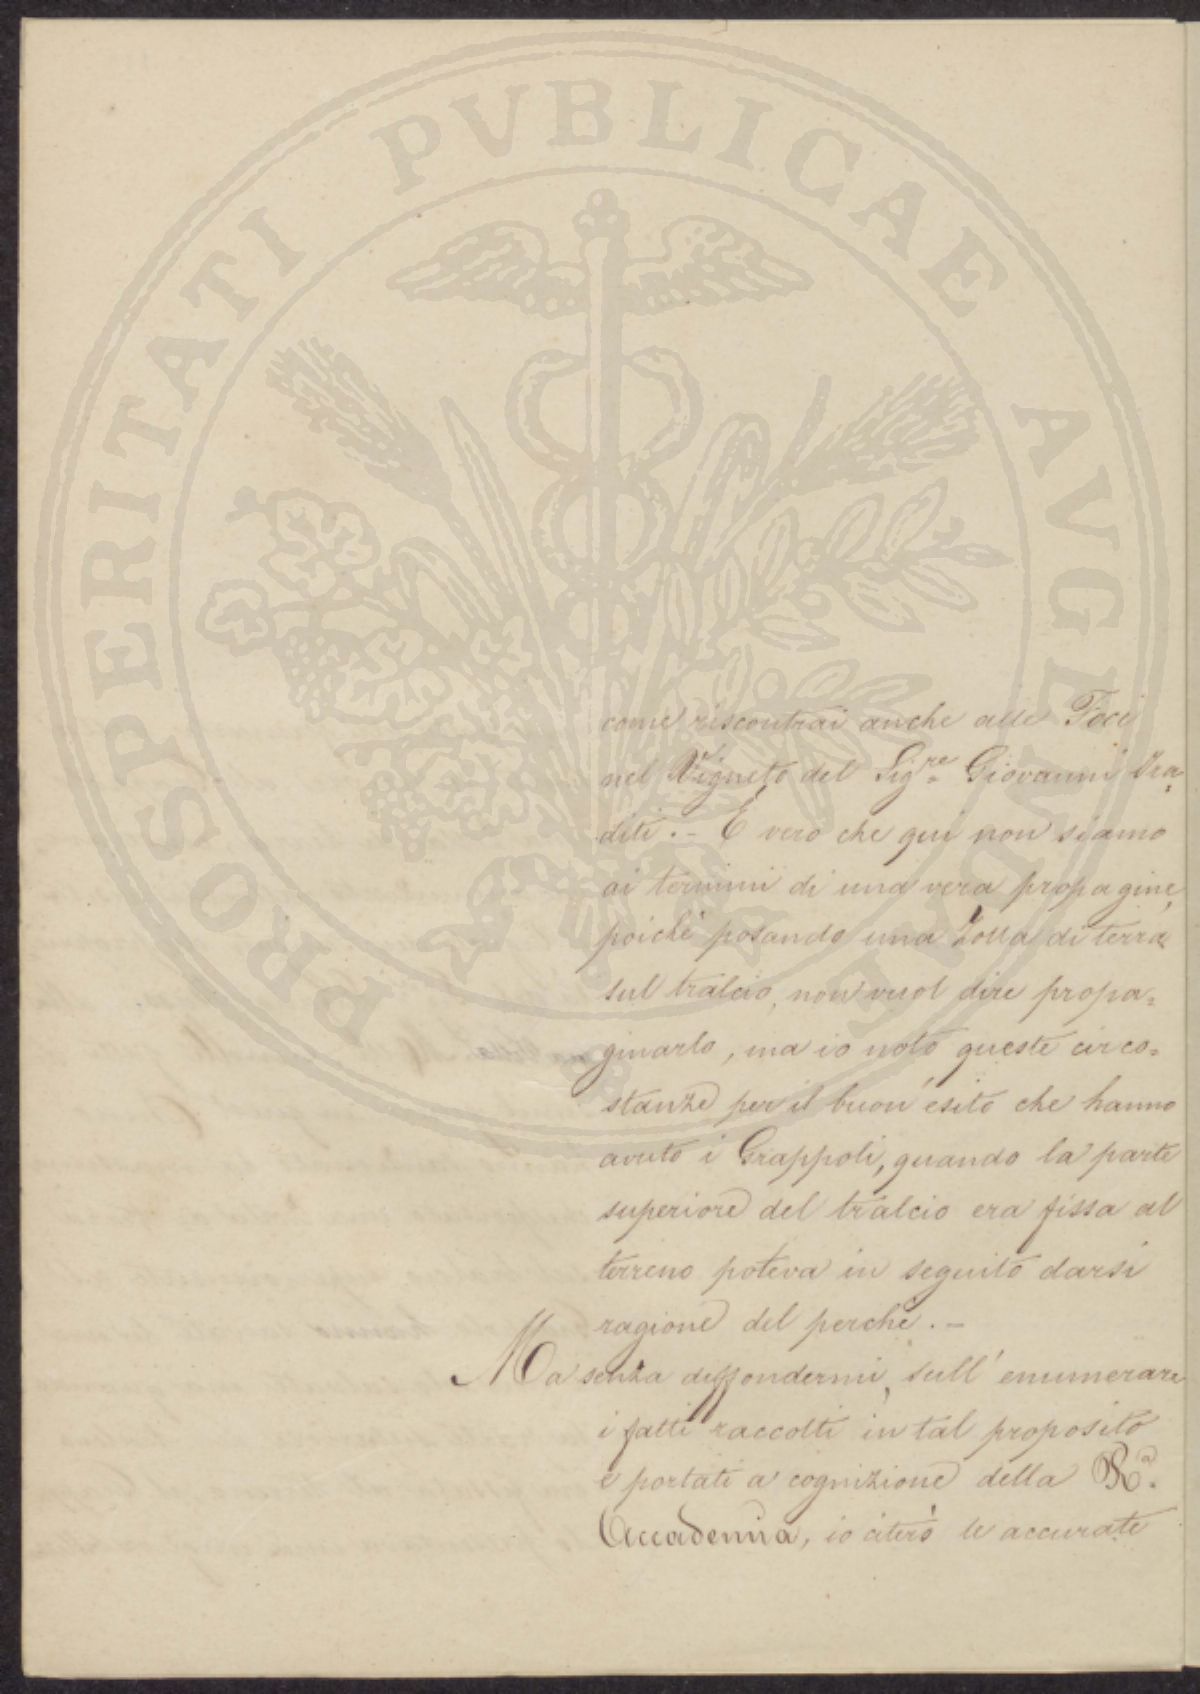 PROSPERITATI PUBLICAE AUGENDAE
come riscontrai anche alle Foci
nel Vigneto del Sig.re Giovanni Tra=
diti. – È vero che qui non siamo
ai termini di una vera propagine,
poichè posando una Zolla di terra
sul tralcio, non vuol dire propa=
ginarlo, ma io noto queste circo=
stanze per il buon'esito che hanno
avuto i Grappoli, quando la parte
superiore del tralcio era fissa al
terreno poteva in seguito darsi
ragione del perchè. –
Ma senza diffondermi, sull'enumerare
i fatti raccolti in tal proposito
e portati a cognizione della R.a
Accademia, io citerò le accurate